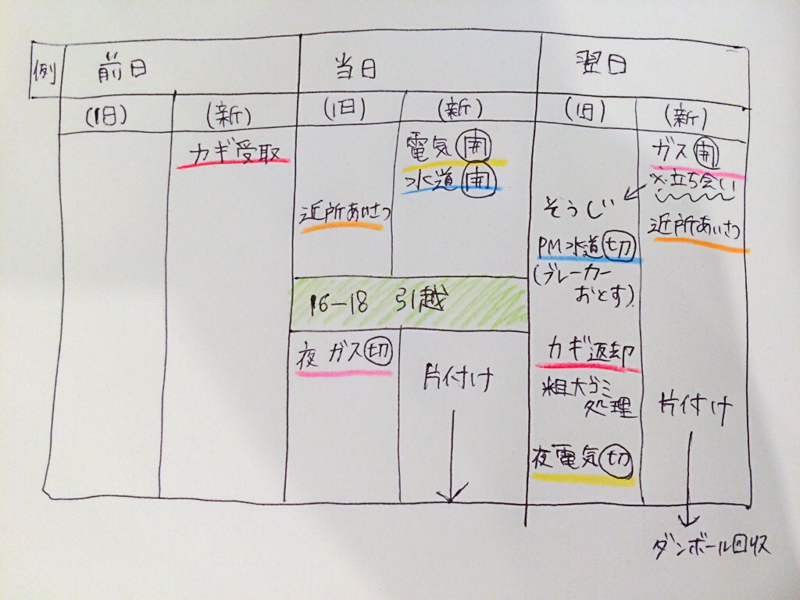 例
前日
当日
翌日
(旧)
(新)
(旧)
(新)
(旧)
(新)
カギ受取
近所あいさつ
電気 開
水道 開
16-18 引越
夜 ガス 切
片付け
そうじ
PM水道 切
(ブレーカー
おとす)
カギ返却
粗大ゴミ
処理
夜電気 切
ガス 開
※立ち会い
近所あいさつ
片付け
ダンボール回収